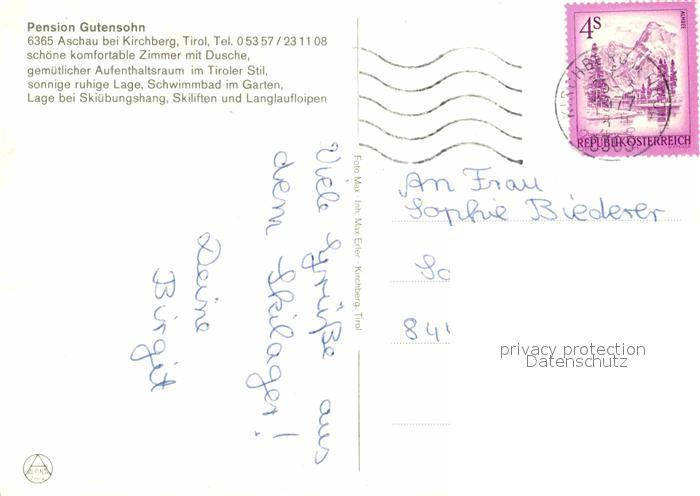 Pension Gutensohn
6365 Aschau bei Kirchberg, Tirol, Tel. 0 53 57 / 23 11 08
schöne komfortable Zimmer mit Dusche,
gemütlicher Aufenthaltsraum im Tiroler Stil,
sonnige ruhige Lage, Schwimmbad im Garten,
Lage bei Skiübungshang, Skiliften und Langlaufloipen
Viele Grüße aus
dem Skilager!
Deine
Birgit
Foto Max · Inh. Max Erler · Kirchberg, Tirol
4S
ALMSEE
REPUBLIK ÖSTERREICH
An Frau
Sophie Biederer
So
841
privacy protection
Datenschutz